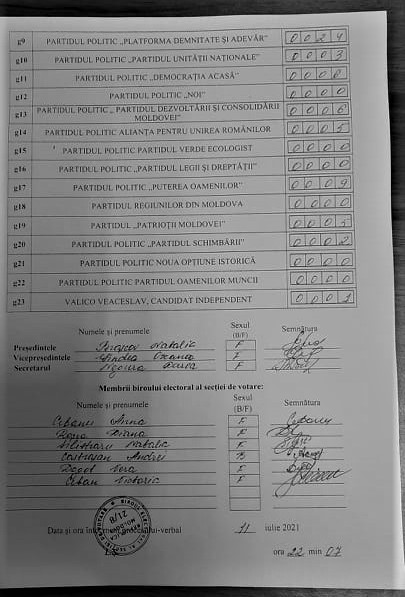 g9 PARTIDUL POLITIC „PLATFORMA DEMNITATE ȘI ADEVĂR” 0 0 2 4
g10 PARTIDUL POLITIC „PARTIDUL UNITĂȚII NAȚIONALE” 0 0 0 3
g11 PARTIDUL POLITIC „DEMOCRAȚIA ACASĂ” 0 0 0 8
g12 PARTIDUL POLITIC „NOI” 0 0 0 0
g13 PARTIDUL POLITIC „ PARTIDUL DEZVOLTĂRII ȘI CONSOLIDĂRII
MOLDOVEI” 0 0 0 6
g14 PARTIDUL POLITIC ALIANȚA PENTRU UNIREA ROMÂNILOR 0 0 0 5
g15 PARTIDUL POLITIC PARTIDUL VERDE ECOLOGIST 0 0 0 0
g16 PARTIDUL POLITIC „PARTIDUL LEGII ȘI DREPTĂȚII” 0 0 0 0
g17 PARTIDUL POLITIC „PUTEREA OAMENILOR” 0 0 0 9
g18 PARTIDUL REGIUNILOR DIN MOLDOVA 0 0 0 0
g19 PARTIDUL „PATRIOȚII MOLDOVEI” 0 0 0 5
g20 PARTIDUL POLITIC „PARTIDUL SCHIMBĂRII” 0 0 0 2
g21 PARTIDUL POLITIC NOUA OPȚIUNE ISTORICĂ 0 0 0 0
g22 PARTIDUL POLITIC PARTIDUL OAMENILOR MUNCII 0 0 0 0
g23 VALICO VEACESLAV, CANDIDAT INDEPENDENT 0 0 0 1
Numele și prenumele Sexul (B/F) Semnătura
Președintele Natalia F
Vicepreședintele F
Secretarul F
Membrii biroului electoral al secției de votare:
Numele și prenumele Sexul (B/F) Semnătura
Anna F
Diana F
Natalia F
Andrei B
Vera F
Victoria F
Data și ora 11 iulie 2021
ora 22 min 07